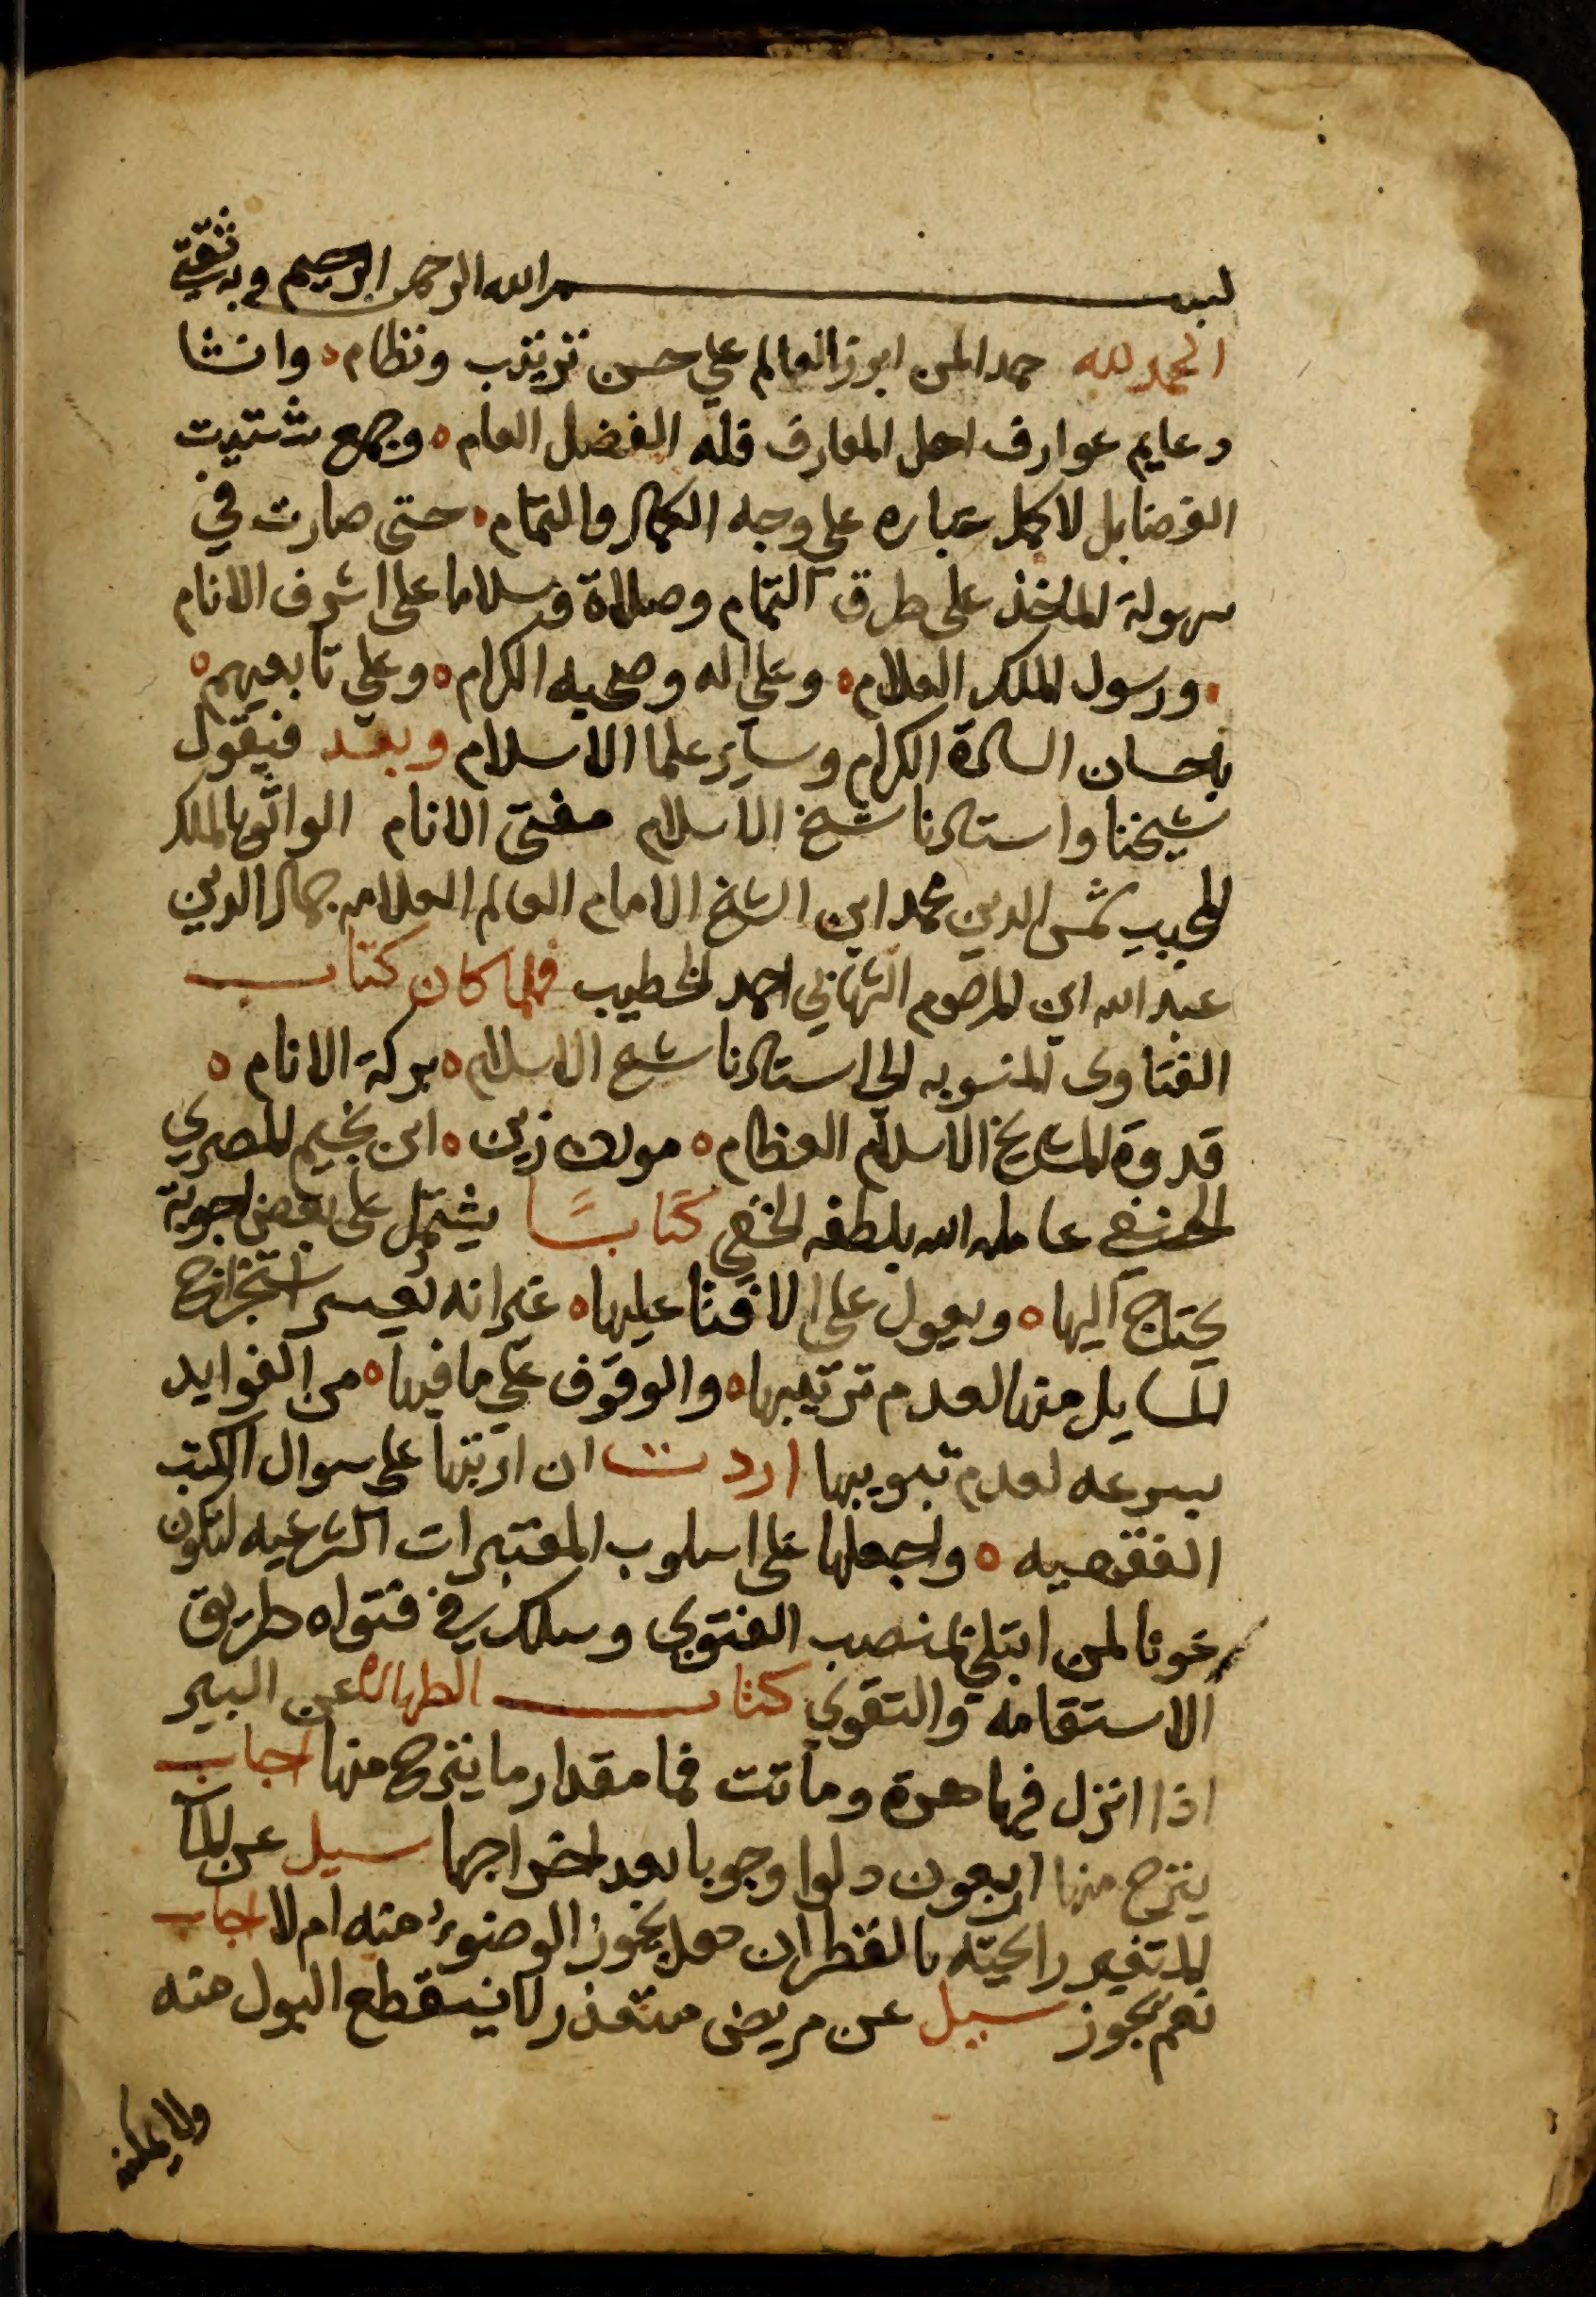 بسم الله الرحمن الرحيم وبه ثقتي
الحمد لله حمدا لمن ابرز العالم علي حسن ترتيب ونظام ، وانشا
دعايم عوارف اهل المعارف فله الفضل العام ، وجمع شتيت
الفضايل لاكمل عباره علي وجه الكمال والتمام ، حتى صارت في
سهولة الماخذ على طرق التمام وصلاة وسلاما على اشرف الانام
، ورسول الملك العلام ، وعلي اله وصحبه الكرام ، وعلي تابعيهم ،
باحسان السادة الكرام وساير علما الاسلام وبعد فيقول
شيخنا واستادنا شيخ الاسلام مفتي الانام الواثق بالملك
المجيب شمس الدين محمد ابن الشيخ الامام العالم العلامه جمال الدين
عبد الله ابن المرحوم الشهابي احمد الخطيب فلما كان كتاب
الفتاوى المنسوبه الى استادنا شيخ الاسلام ، بركة الانام ،
قدوة المشايخ الاسلام العظام ، مولانا زين ، ابن نجيم المصري
الحنفي عامله الله بلطفه الخفي كتابًا يشتمل على بعض اجوبة
يحتاج اليها ، ويعول على الافتا عليها ، غير انه يعسر استخراج
المسايل منها لعدم ترتيبها ، والوقوف علي ما فيها ، من الفوايد
بسرعه لعدم تبويبها اردت ان ارتبها على سوال الكتب
الفقهيه ، واجعلها على اسلوب المعتبرات الشرعيه لتكون
عونا لمن ابتلي بمنصب الفتوي وسلك في فتواه طريق
الاستقامة والتقوي كتاب الطهارة عن البير
اذا انزل فيها هرة وماتت فما مقدار ما ينزح منها اجاب
ينزح منها اربعون دلوا وجوبا بعد اخراجها سيل عن الما
المتغير رايحته بالقطران هل يجوز الوضوء منه ام لا اجاب
نعم يجوز سيل عن مريض متعذر لا ينقطع البول منه
ولا يمكنه